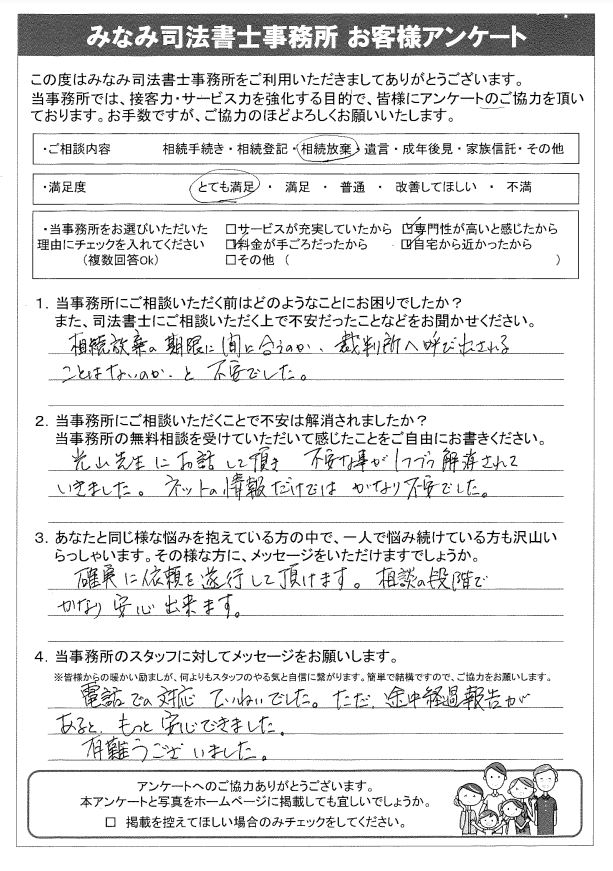 みなみ司法書士事務所 お客様アンケート
この度はみなみ司法書士事務所をご利用いただきましてありがとうございます。
当事務所では、接客力・サービス力を強化する目的で、皆様にアンケートのご協力を頂い
ております。お手数ですが、ご協力のほどよろしくお願いいたします。
・ご相談内容 相続手続き・相続登記・相続放棄・遺言・成年後見・家族信託・その他
・満足度 とても満足 ・ 満足 ・ 普通 ・ 改善してほしい ・ 不満
・当事務所をお選びいただいた □サービスが充実していたから ☑専門性が高いと感じたから
理由にチェックを入れてください ☑料金が手ごろだったから ☑自宅から近かったから
(複数回答Ok) □その他 ( )
1. 当事務所にご相談いただく前はどのようなことにお困りでしたか?
また、司法書士にご相談いただく上で不安だったことなどをお聞かせください。
相続放棄の期限に間に合うのか、裁判所へ呼び出される
ことはないのか、と不安でした。
2. 当事務所にご相談いただくことで不安は解消されましたか?
当事務所の無料相談を受けていただいて感じたことをご自由にお書きください。
光山先生にお話して頂き 不安な事が1つづつ解消されて
いきました。ネットの情報だけではかなり不安でした。
3. あなたと同じ様な悩みを抱えている方の中で、一人で悩み続けている方も沢山い
らっしゃいます。その様な方に、メッセージをいただけますでしょうか。
確実に依頼を遂行して頂けます。相談の段階で
かなり安心出来ます。
4. 当事務所のスタッフに対してメッセージをお願いします。
※皆様からの暖かい励ましが、何よりもスタッフのやる気と自信に繋がります。簡単で結構ですので、ご協力をお願いします。
電話での対応 ていねいでした。ただ、途中経過報告が
あると、もっと安心できました。
有難うございました。
アンケートへのご協力ありがとうございます。
本アンケートと写真をホームページに掲載しても宜しいでしょうか。
□ 掲載を控えてほしい場合のみチェックをしてください。